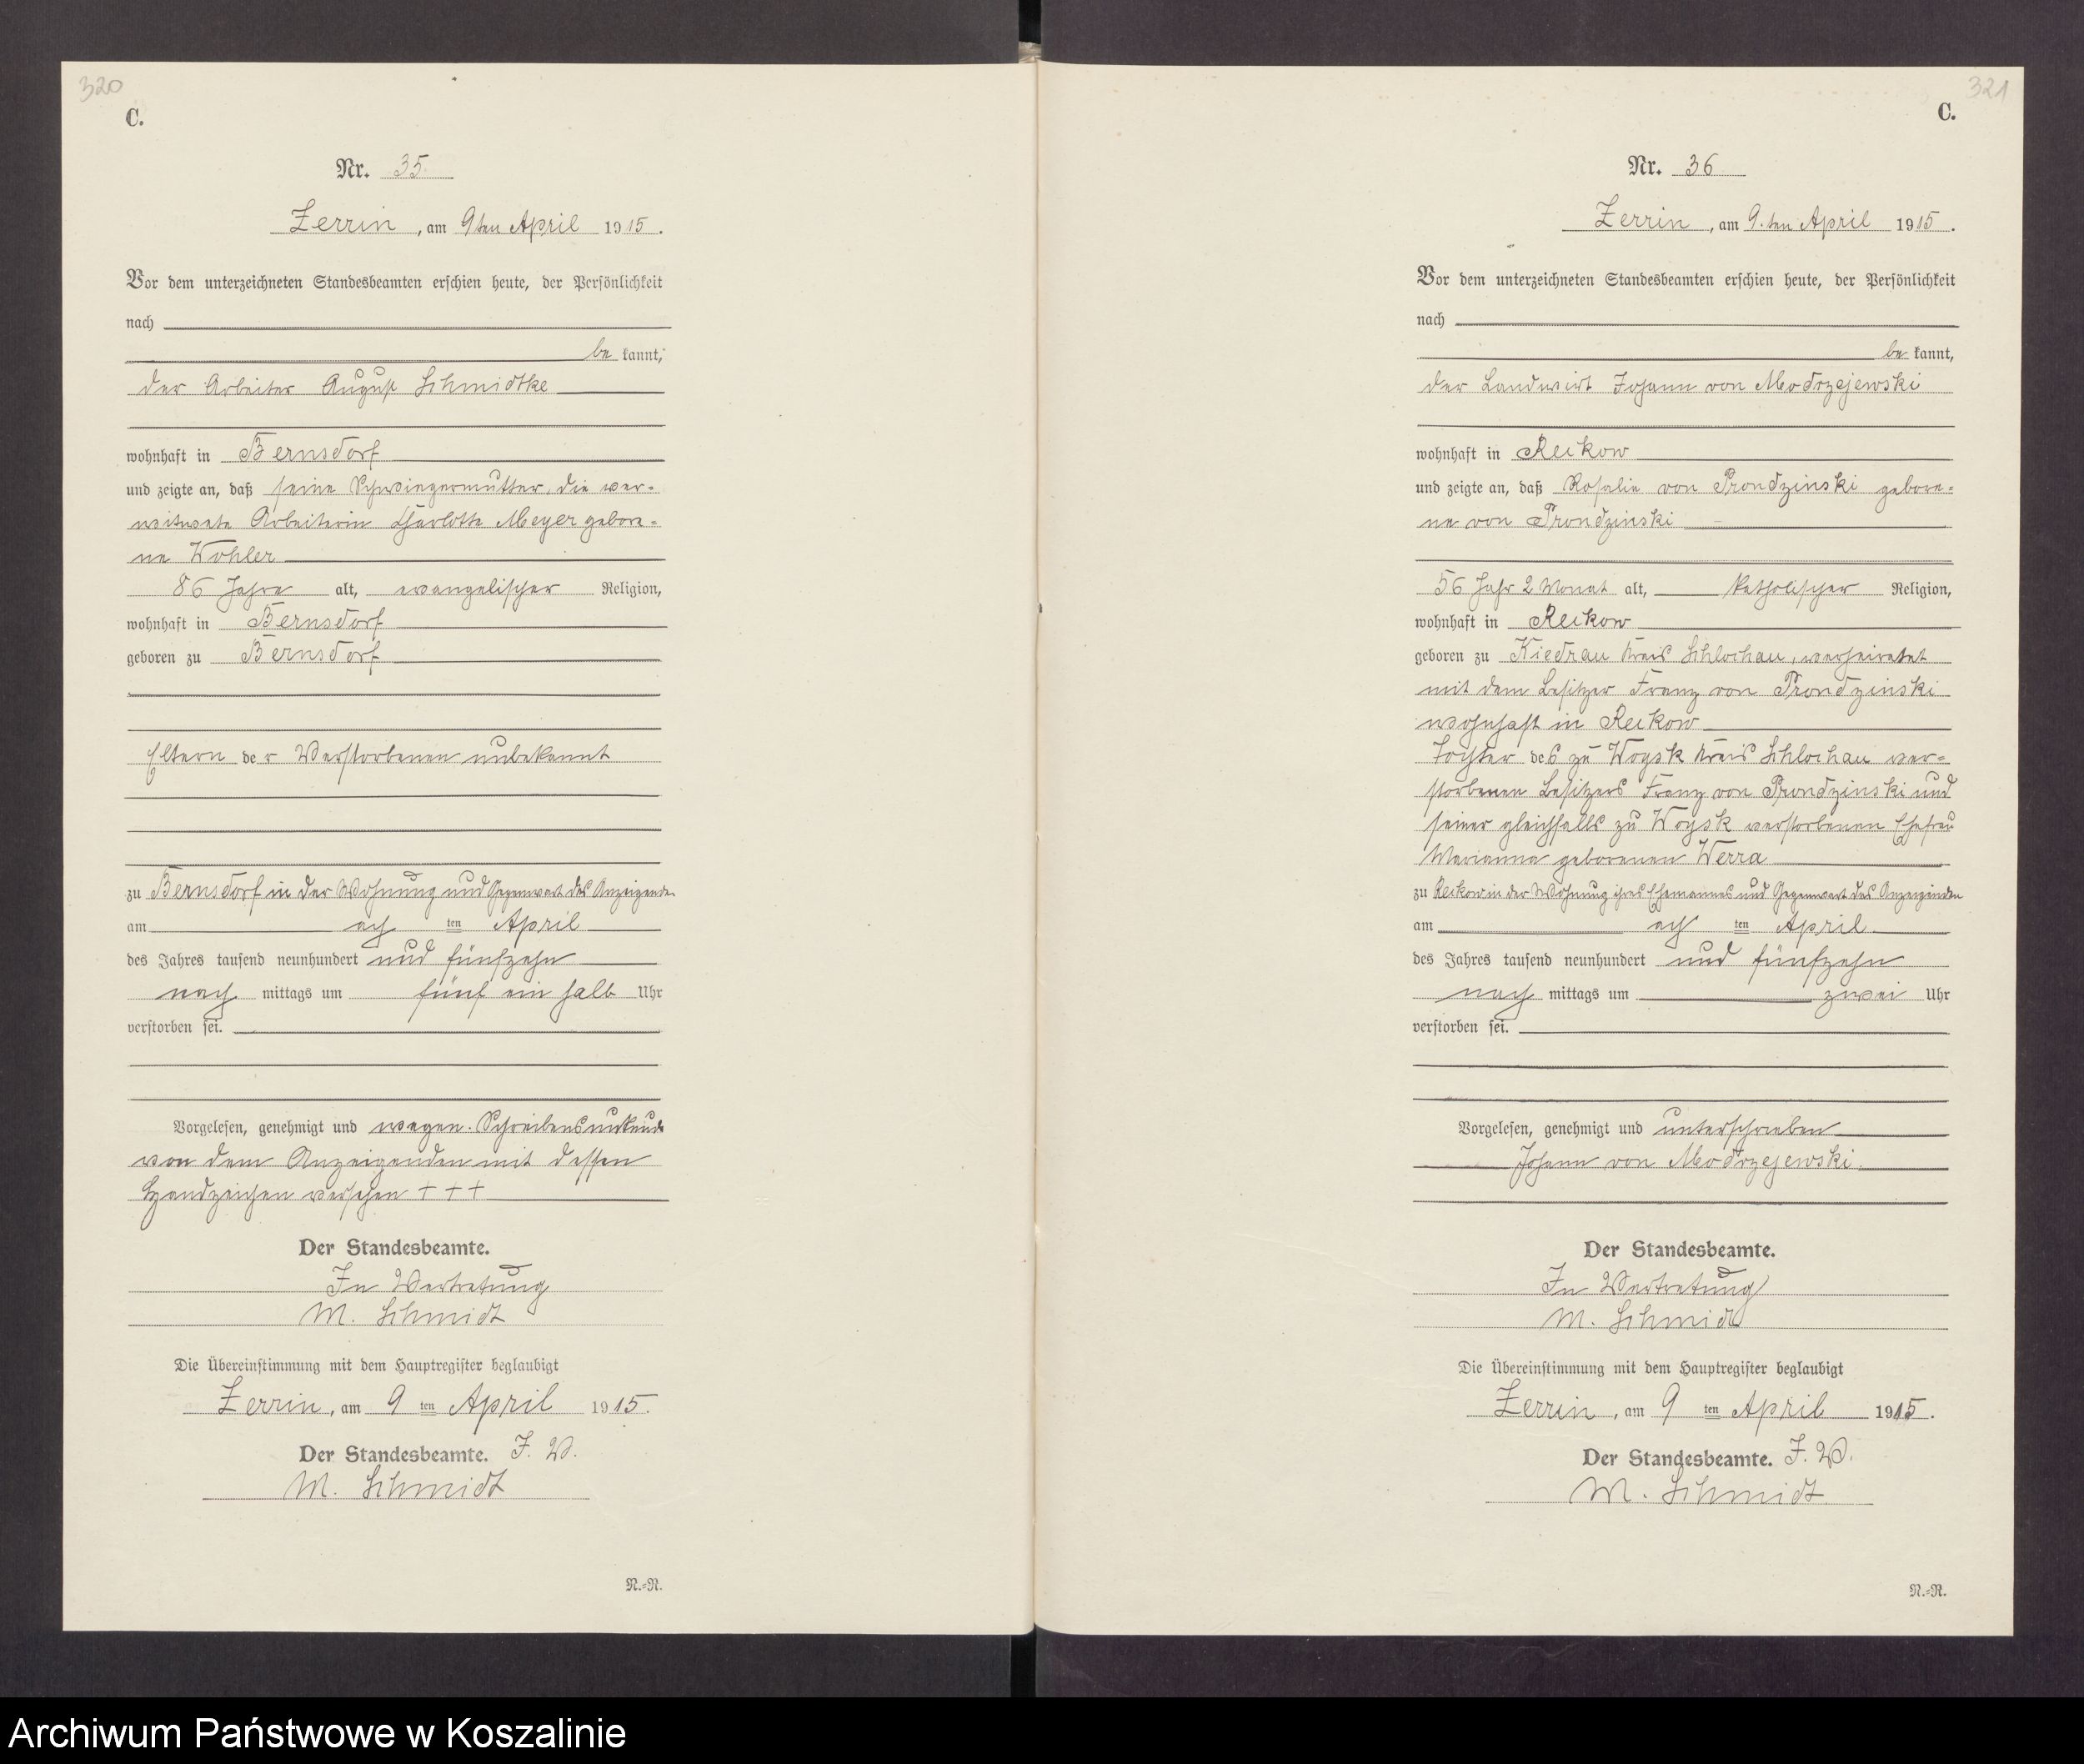 320
C.
Nr. 35.
Zerrin, am 9ten April 1915.
Vor dem unterzeichneten Standesbeamten erschien heute, der Persönlichkeit
nach
be kannt,
der Arbeiter August Schmidtke
wohnhaft in Bernsdorf
und zeigte an, daß seine Schwiegermutter, die ver-
witwete Arbeiterin Charlotte Meyer gebore-
ne Wohler
86 Jahre alt, evangelischer Religion,
wohnhaft in Bernsdorf
geboren zu Bernsdorf
Eltern der Verstorbenen unbekannt
zu Bernsdorf in der Wohnung und Gegenwart des Anzeigenden
am acht ten April
des Jahres tausend neunhundert und fünfzehn
nach mittags um fünf ein halb Uhr
verstorben sei.
Vorgelesen, genehmigt und wegen Schreibensunkunde
von dem Anzeigenden mit dessen
Handzeichen versehen + + +
Der Standesbeamte.
In Vertretung
M. Schmidt
Die Übereinstimmung mit dem Hauptregister beglaubigt
Zerrin, am 9 ten April 1915.
Der Standesbeamte. I. V.
M. Schmidt
N.-R.
321
C.
Nr. 36
Zerrin, am 9.ten April 1915.
Vor dem unterzeichneten Standesbeamten erschien heute, der Persönlichkeit
nach
be kannt,
der Landwirt Johann von Modrzejewski
wohnhaft in Reckow
und zeigte an, daß Rosalie von Prondzinski gebore-
ne von Prondzinski
56 Jahr 2 Monat alt, katholischer Religion,
wohnhaft in Reckow
geboren zu Kiedrau Kreis Schlochau, verheiratet
mit dem Besitzer Franz von Prondzinski
wohnhaft in Reckow
Tochter des zu Woysk Kreis Schlochau ver-
storbenen Besitzers Franz von Prondzinski und
seiner gleichfalls zu Woysk verstorbenen Ehefrau
Marianna geborenen Werra
zu Reckow in der Wohnung ihres Ehemannes und Gegenwart des Anzeigenden
am acht ten April
des Jahres tausend neunhundert und fünfzehn
nach mittags um zwei Uhr
verstorben sei.
Vorgelesen, genehmigt und unterschrieben
Johann von Modrzejewski.
Der Standesbeamte.
In Vertretung
M. Schmidt
Die Übereinstimmung mit dem Hauptregister beglaubigt
Zerrin, am 9 ten April 1915.
Der Standesbeamte. I. V.
M. Schmidt
N.-R.
Archiwum Państwowe w Koszalinie